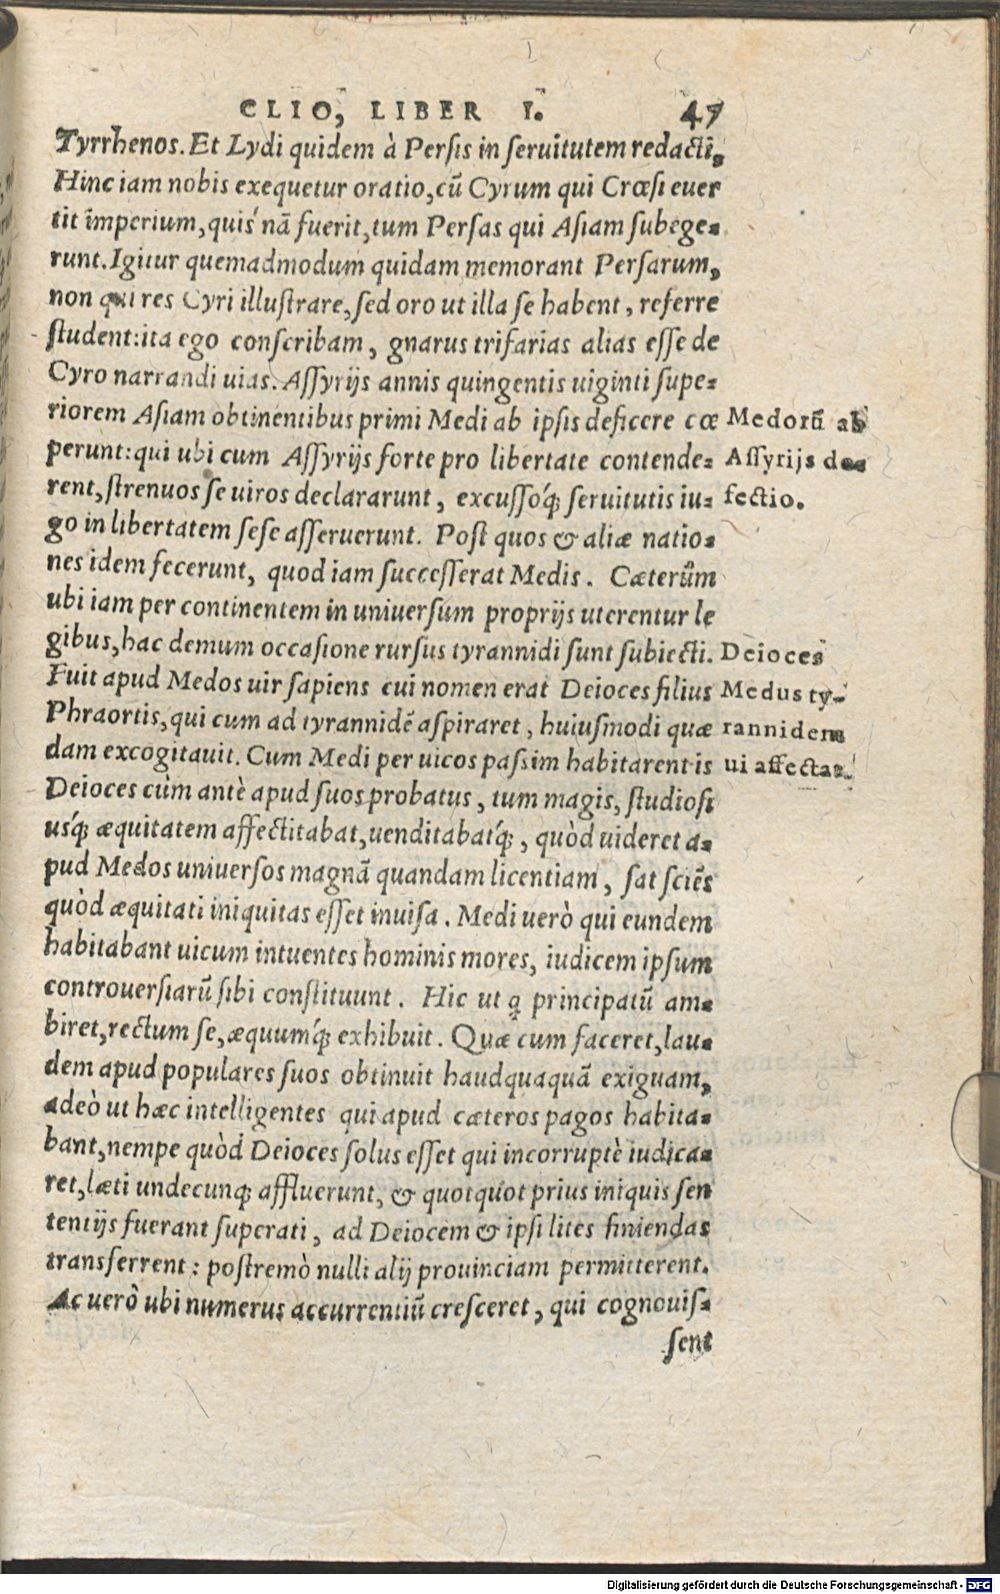 CLIO, LIBER I. 47
Tyrrhenos. Et Lydi quidem à Persis in seruitutem redacti,
Hinc iam nobis exequetur oratio, cũ Cyrum qui Crœsi euer
tit imperium, quis nã fuerit, tum Persas qui Asiam subege-
runt. Igitur quemadmodum quidam memorant Persarum,
non qui res Cyri illustrare, sed oro ut illa se habent, referre
student: ita ego conscribam, gnarus trifarias alias esse de
Cyro narrandi uias. Assyrijs annis quingentis uiginti supe-
riorem Asiam obtinentibus primi Medi ab ipsis deficere cœ
perunt: qui ubi cum Assyrijs forte pro libertate contende-
rent, strenuos se uiros declararunt, excussoq́; seruitutis iu-
go in libertatem sese asseruerunt. Post quos & aliæ natio-
nes idem fecerunt, quod iam successerat Medis. Cæterũm
ubi iam per continentem in uniuersum proprijs uterentur le
gibus, hac demum occasione rursus tyrannidi sunt subiecti.
Fuit apud Medos uir sapiens cui nomen erat Deioces filius
Phraortis, qui cum ad tyrannidẽ aspiraret, huiusmodi quæ
dam excogitauit. Cum Medi per uicos passim habitarent is
Deioces cùm antè apud suos probatus, tum magis, studiosi
usq́; æquitatem affectitabat, uenditabatq́;, quòd uideret a-
pud Medos uniuersos magnã quandam licentiam, sat sciẽs
quòd æquitati iniquitas esset inuisa. Medi uerò qui eundem
habitabant uicum intuentes hominis mores, iudicem ipsum
controuersiarũ sibi constituunt. Hic ut q principatũ am-
biret, rectum se, æquumq́; exhibuit. Quæ cum faceret, lau-
dem apud populares suos obtinuit haudquaquã exiguam,
adeò ut hæc intelligentes qui apud cæteros pagos habita-
bant, nempe quòd Deioces solus esset qui incorruptè iudica-
ret, læti undecunq; affluerunt, & quotquot prius iniquis sen
tentijs fuerant superati, ad Deiocem & ipsi lites finiendas
transferrent: postremò nulli alij prouinciam permitterent.
Ac uerò ubi numerus accurrentiũ cresceret, qui cognouis-
sent
Medorũ ab
Assyrijs de-
fectio.
Deioces
Medus ty-
rannidem
ui affectat.
Digitalisierung gefördert durch die Deutsche Forschungsgemeinschaft - DFG